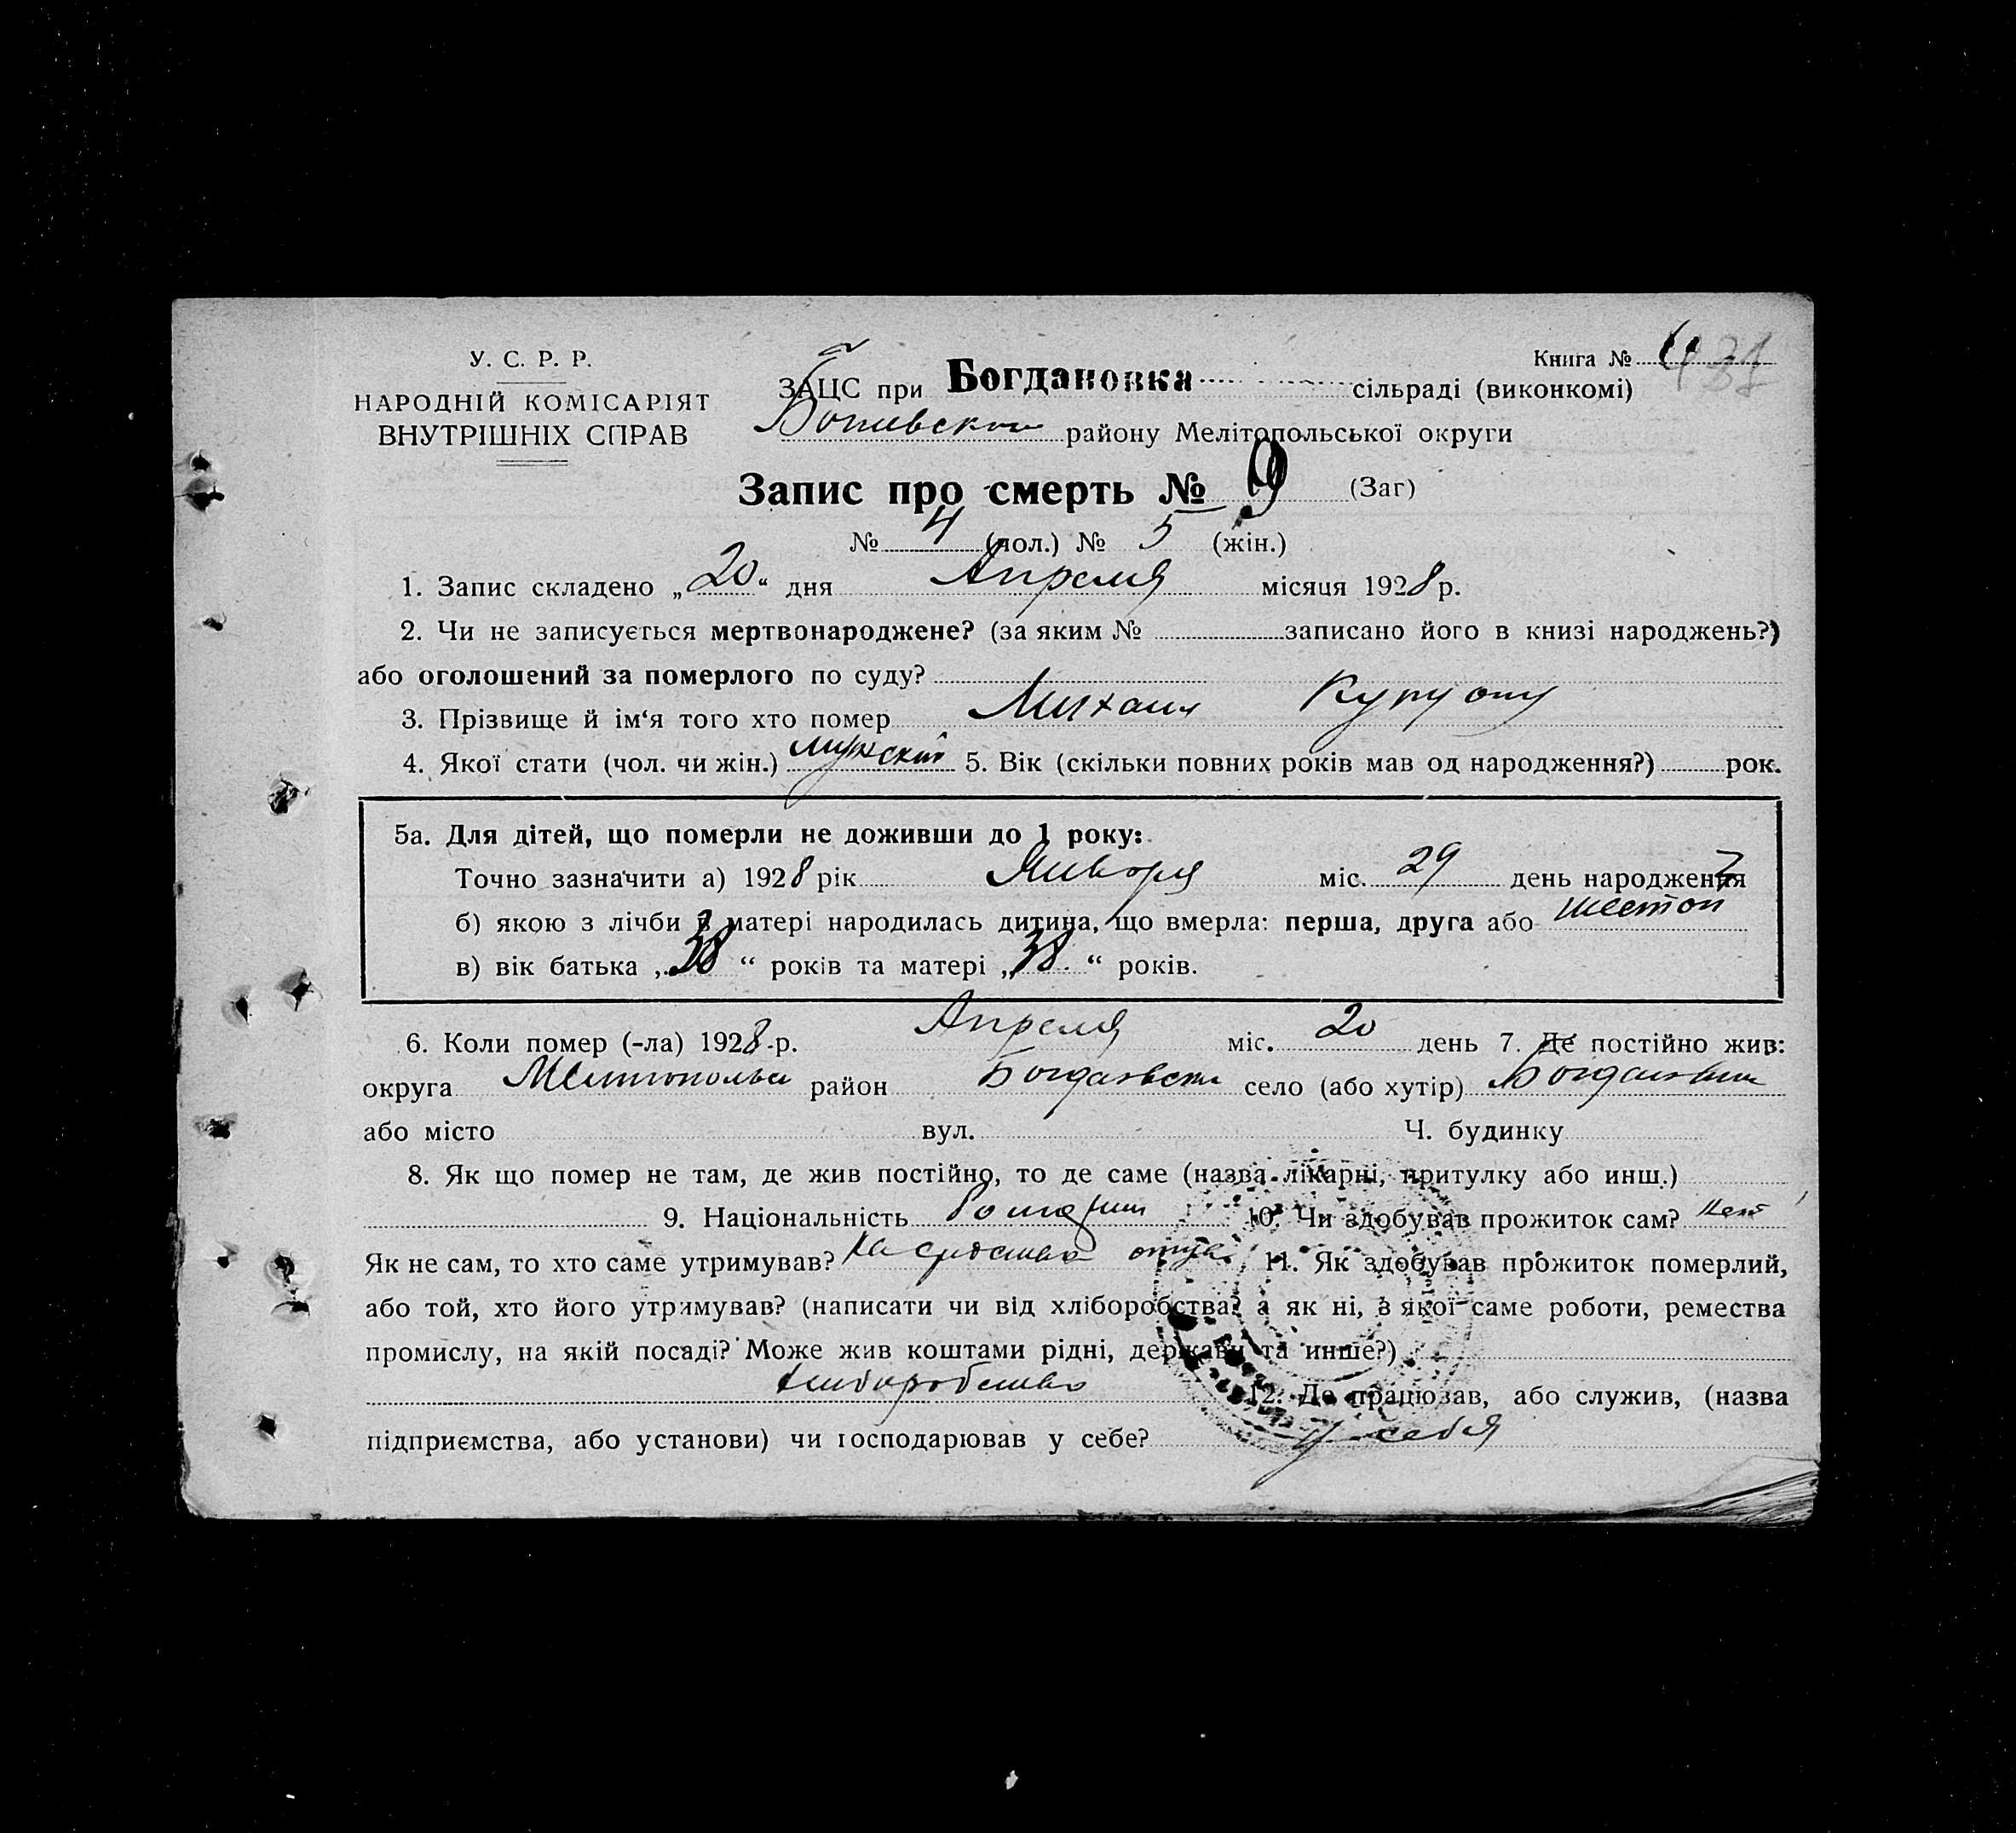 У. С. Р. Р.
НАРОДНІЙ КОМІСАРІЯТ
ВНУТРІШНІХ СПРАВ
Книга №
ЗАЦС при Богдановка сільраді (виконкомі)
району Мелітопольської округи
Запис про смерть № 9 (Заг)
№ 4 (чол.) № 5 (жін.)
1. Запис складено „20“ дня Апреля місяця 1928 р.
2. Чи не записується мертвонароджене? (за яким № записано його в книзі народжень?)
або оголошений за померлого по суду?
3. Прізвище й ім‘я того хто помер Михаил
4. Якої стати (чол. чи жін.) мужской 5. Вік (скільки повних років мав од народження?) рок.
5а. Для дітей, що померли не доживши до 1 року:
Точно зазначити а) 1928 рік Января міс. 29 день народження
б) якою з лічби в матері народилась дитина, що вмерла: перша, друга або шестой
в) вік батька „38“ років та матері „38“ років.
6. Коли помер (-ла) 1928 р. Апреля міс. 20 день 7. Де постійно жив:
округа район село (або хутір)
або місто вул. Ч. будинку
8. Як що помер не там, де жив постійно, то де саме (назва лікарні, притулку або инш.)
9. Національність 10. Чи здобував прожиток сам? нет
Як не сам, то хто саме утримував? На средства отца 11. Як здобував прожиток померлий,
або той, хто його утримував? (написати чи від хліборобства? а як ні, з якої саме роботи, ремества
промислу, на якій посаді? Може жив коштами рідні, держави та инше?)
хлиборобство 12. Де працював, або служив, (назва
підприємства, або установи) чи господарював у себе? У себя